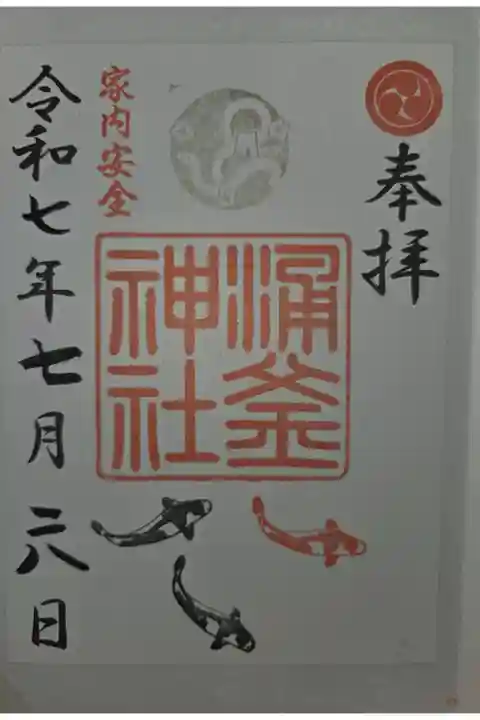 奉拝
涌釜
神社
家内安全
令和七年七月二八日